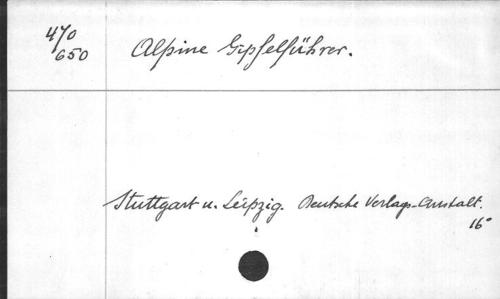 470
650
Alpine Gipfelführer.
Stuttgart u. Leipzig. Deutsche Verlags-Anstalt.
16°